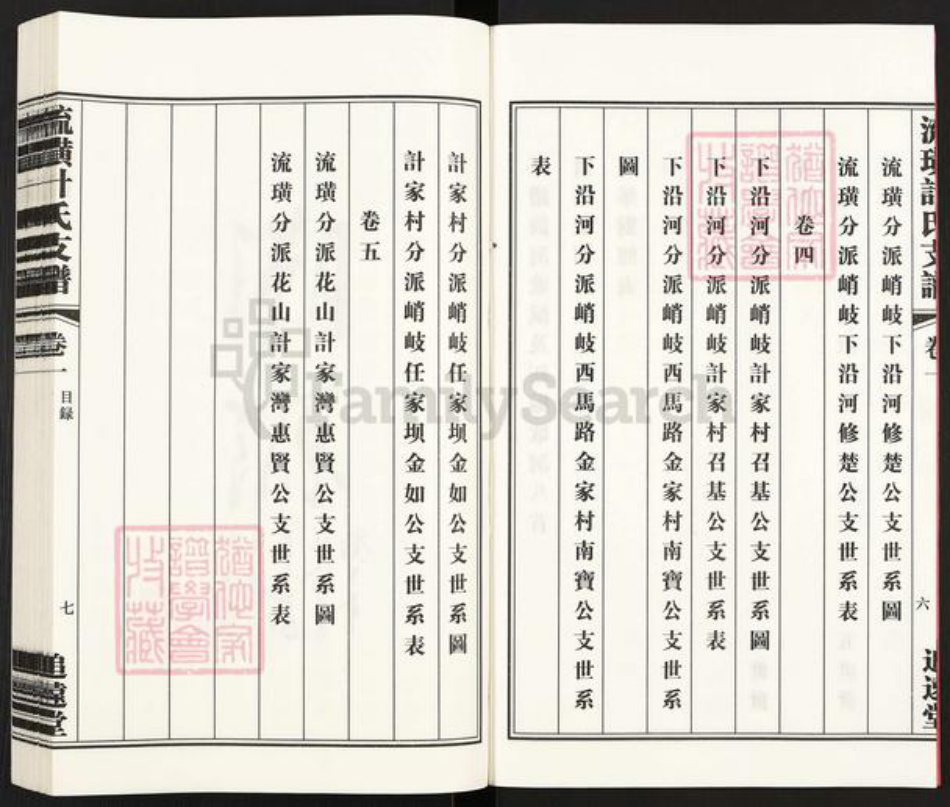 流璜計氏支譜
卷
六
追遠堂
流璜分派峭岐下沿河修楚公支世系圖
流璜分派峭岐下沿河修楚公支世系表
卷四
下沿河分派峭岐計家村召基公支世系圖
下沿河分派峭岐計家村召基公支世系表
下沿河分派峭岐西馬路金家村南寶公支世系
圖
下沿河分派峭岐西馬路金家村南寶公支世系
表
計家村分派峭岐任家坝金如公支世系圖
計家村分派峭岐任家坝金如公支世系表
卷五
流璜分派花山計家灣惠賢公支世系圖
流璜分派花山計家灣惠賢公支世系表
流璜計氏支譜
卷一
目録
七
追遠堂
譜學會
收藏
FamilySearch